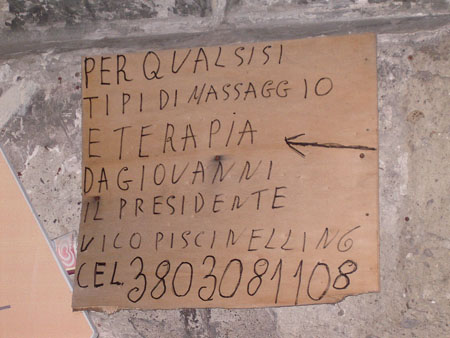 PER QUALSISI
TIPI DI MASSAGGIO
E TERAPIA
DA GIOVANNI
IL PRESIDENTE
VICO PISCINELLI NG
CEL. 3803081108